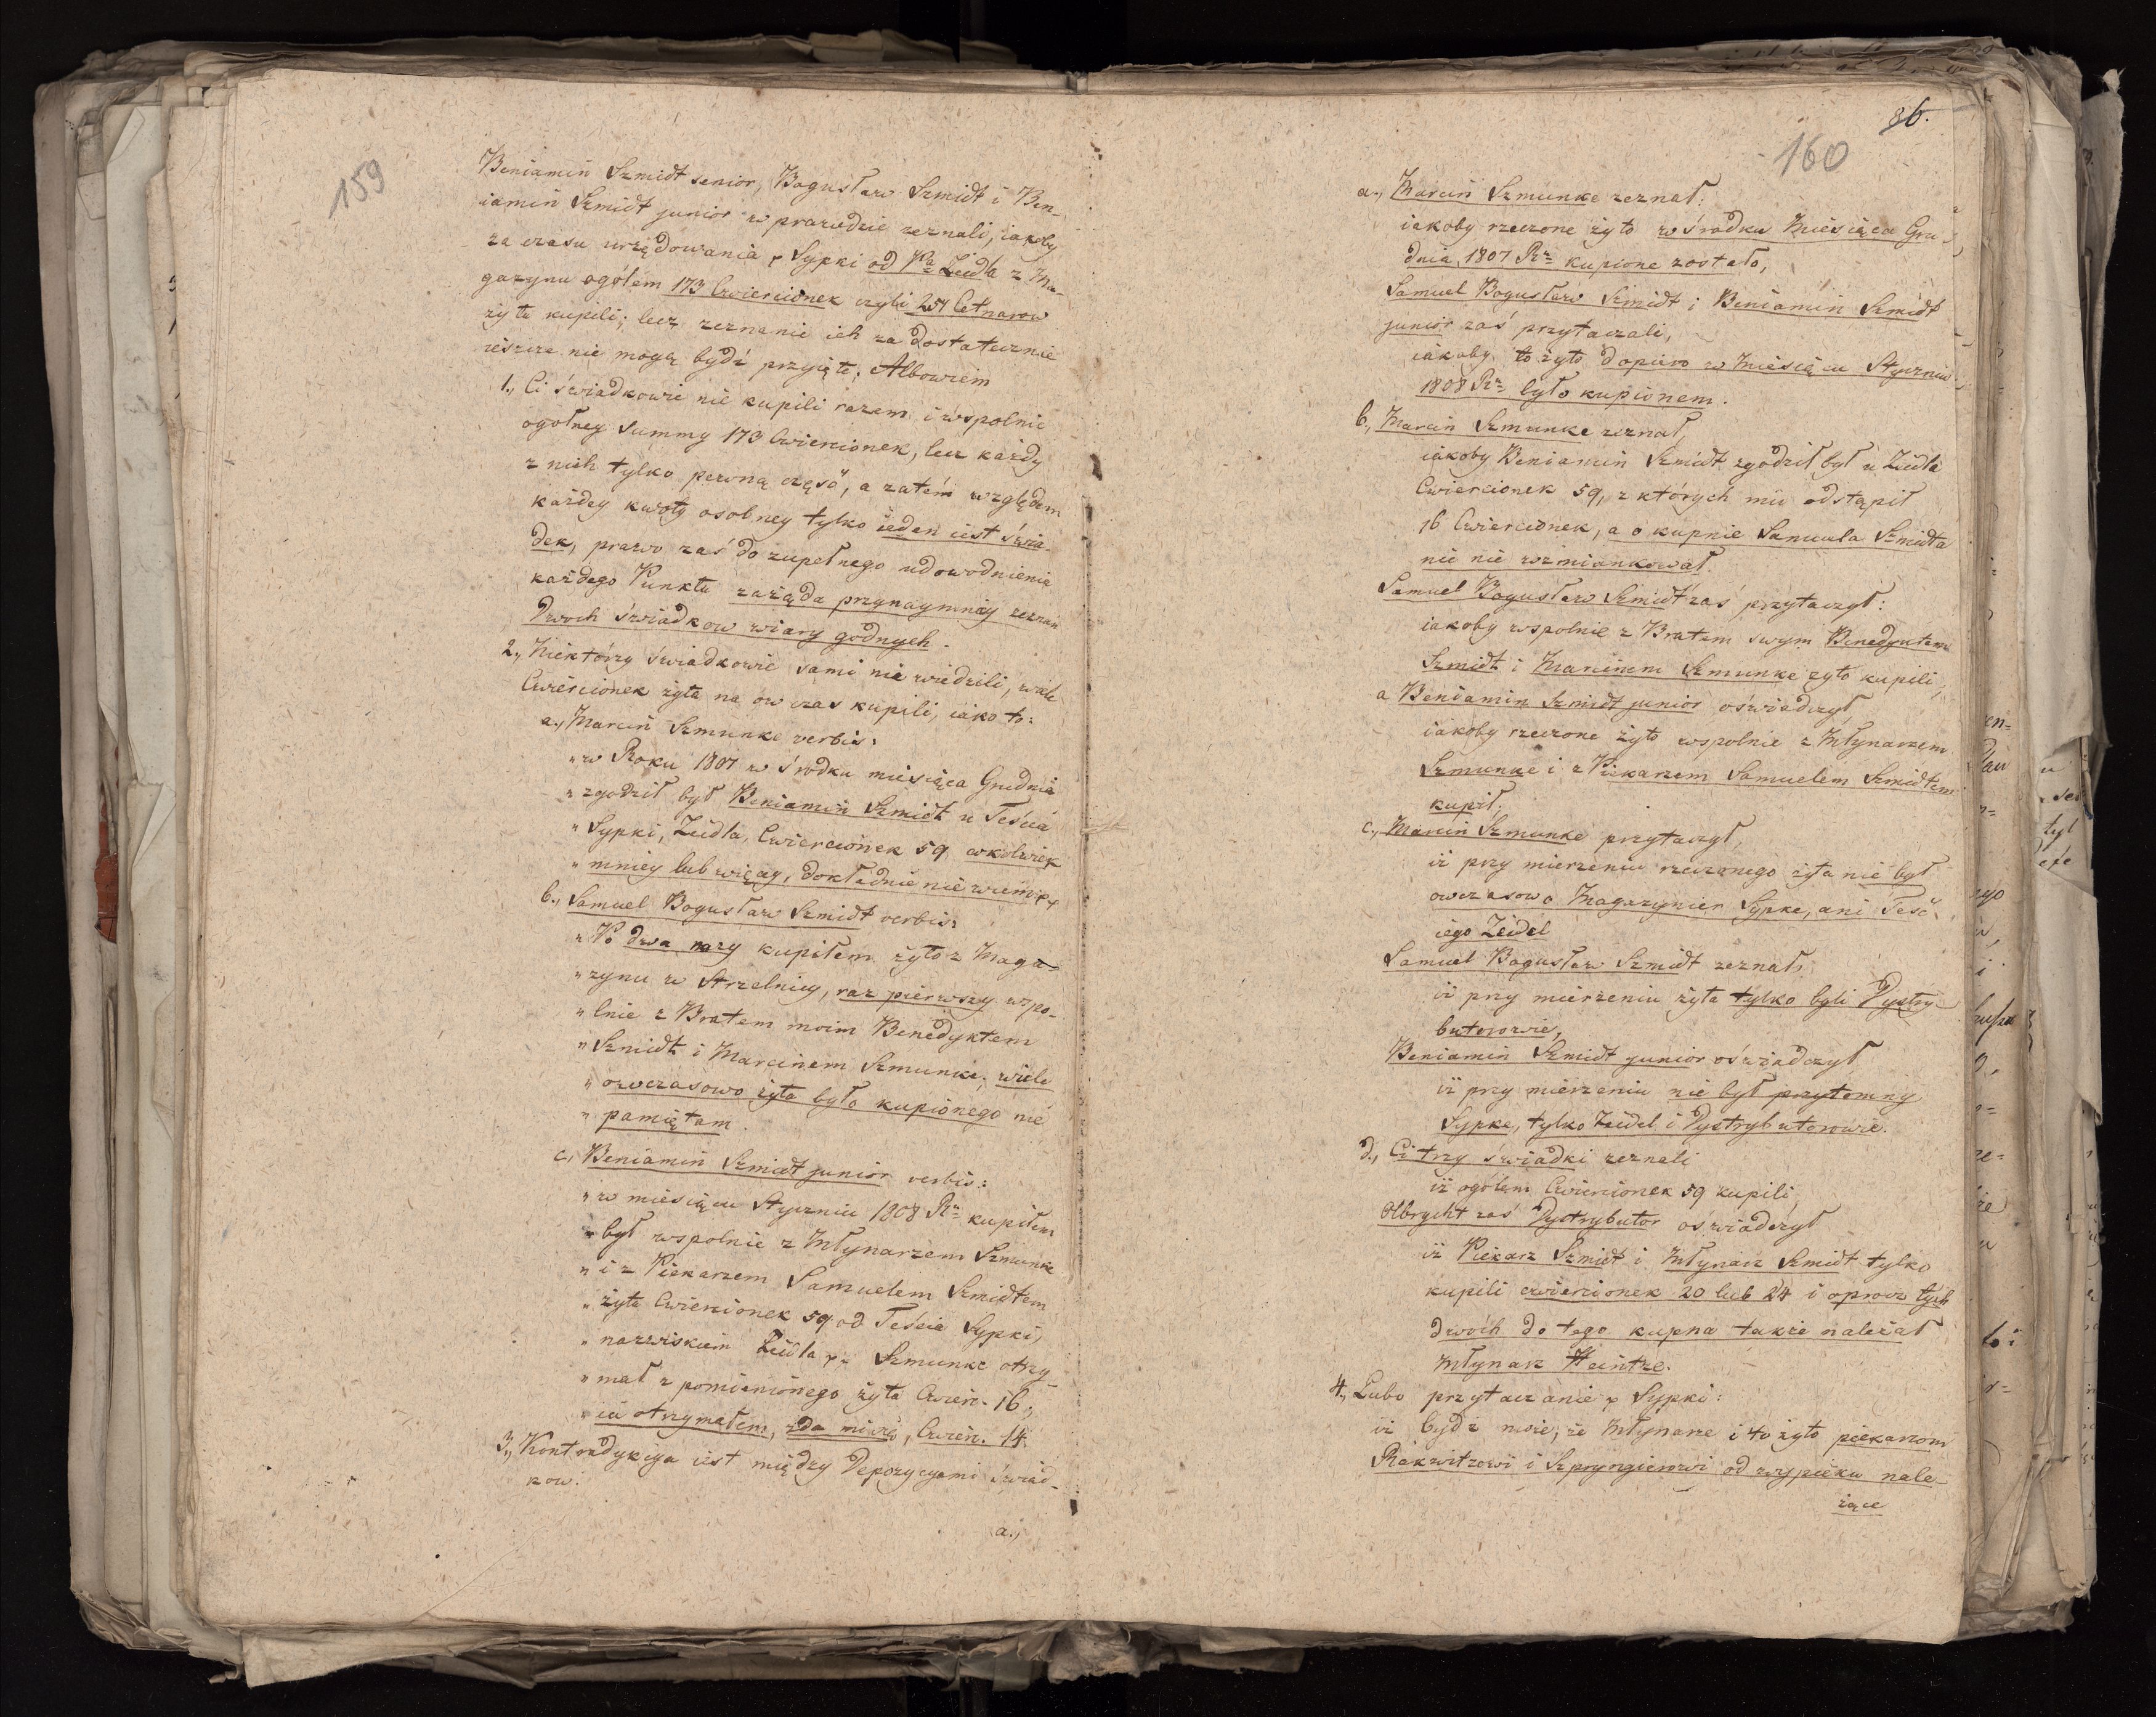 159
Beniamin Szmidt senior, Bogusław Szmidt i Ben-
iamin Szmidt junior w prawdzie zeznali, iakoby
za czasu urzędowania p Sypki od Pa Zeidla z Ma-
gazynu ogółem 173 Cwiercionek czyli 254 Cetnarow
żyta kupili; lecz zeznanie ich za dostatecznie
ieszcze nie mogą bydź przyięte; Albowiem
1., Ci świadkowie nie kupili razem i wspolnie
ogólney Summy 173 Cwiercionek, lecz każdy
z nich tylko pewną część, a zatém względem
każdey kwoty osobney tylko ieden iest świa-
dek, prawo zaś do zupełnego udowodnienia
każdego Punktu zażąda przynaymniey zeznań
Dwoch świadkow wiary godnych.
2., Niektórzy świadkowie sami nie wiedzili, wiele
Cwiercionek żyta na ow czas kupili, iako to:
a., Marcin Szmunke verbis:
„ w Roku 1807 w środku miesiąca Grudnia
„ zgodził był Beniamin Szmidt u Teścia
„ Sypki, Zeidla, Cwiercionek 59 cokolwiek
„ mniey lub więcey, dokładnie nie wiem
b., Samuel Bogusław Szmidt verbis:
„ Po dwa razy kupiłem żyto z Maga-
„ zynu w Strzelnicy, raz pierwszy wspo-
„ lnie z Bratem moim Benedyktem
„ Szmidt i Marcinem Szmunke; wiele
„ owczasowo żyta było kupionego nie
„ pamiętam.
c., Beniamin Szmidt junior verbis:
„ w miesiącu Styczniu 1808 Rz kupiłem
„ był wspolnie z Młynarzem Szmunke
„ i z Piekarzem Samuelem Szmidtem
„ żyta Cwiercionek 59 od Teścia Sypki,
„ nazwiskiem Zeidla pp Szmunke otrzy-
„ mał z pomienionego żyta Cwierc. 16.,
„ ia otrzymałem, zda mi się, Cwierc. 14.
3., Kontradykcya iest między Depozycyami świad-
kow:
a.,
86.
160
a., Marcin Szmunke zeznał:
iakoby rzeczone żyto w środku Miesiąca Gru-
dnia, 1807 Rz kupione zostało,
Samuel Bogusław Szmidt i Beniamin Szmidt
junior zaś przytaczali,
iakoby to żyto dopiero w Miesiącu Styczniu
1808 Rz było kupionem.
b., Marcin Szmunke zeznał,
iakoby Beniamin Szmidt zgodził był u Zeidla
Cwiercionek 59, z których mu odstąpił
16 Cwiercionek, a o kupnie Samuela Szmidta
nic nie wzmiankował.
Samuel Bogusław Szmidt zaś przytaczył:
iakoby wspolnie z Bratem swym Benedyctem
Szmidt i Marcinem Szmunke żyto kupili,
a Beniamin Szmidt junior oświadczył
iakoby rzeczone żyto wspolnie z Młynarzem
Szmunke i z Piekarzem Samuelem Szmidtem
kupił.
c., Marcin Szmunke przytaczył,
iż przy mierzeniu rzeczonego żyta nie był
owczasowo Magazynier Sypke, ani Teść
iego Zeidel
Samuel Bogusław Szmidt zeznał,
iż przy mierzeniu żyta tylko byli Dystry-
butorowie,
Beniamin Szmidt junior oświadczył
iż przy mierzeniu nie był przytomny
Sypke, tylko Zeidel i Dystrybutorowie.
d., Ci trzy świadki zeznali
iż ogółem Cwiercionek 59 kupili,
Olbrycht zaś Dystrybutor oświadczył
iż Piekarz Szmidt i Młynarz Szmidt tylko
kupili cwiercionek 20 lub 24 i oprocz tych
dwoch do tego kupna także należał
Młynarz Heintze.
4., Lubo przytaczanie p Sypki:
iż bydź może, że Młynarze i to żyto piekarzom
Rakwitzowi i Szpryngierowi od wypieku nale-
żące